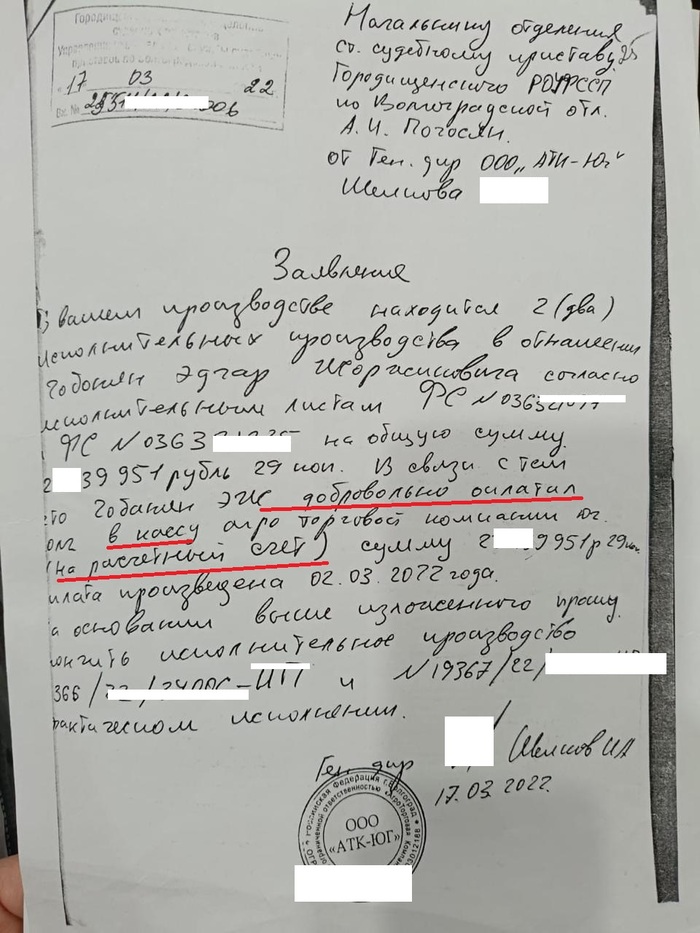 17 03 22
Вх. №
Начальнику отделения
ст. судебному приставу
Городищенского РОУФССП
по Волгоградской отл.
А.И. Погосян.
от Ген. дир ООО „АТК-Юг"
Шелихова
Заявление
вашем производстве находится 2 (два)
исполнительных производства в отнашении
Чобанян Эдгар согласно
исполнительным листам ФС N
ФС N0363 на общую сумму
2 39 951 рубль 29 коп. В связи с тем
что Чобанян ЭЖ добровольно оплатил
в кассу агро торговой компании Юг.
(на расчетный счет) сумму 2 9951р 29коп
плата произведена 02.03.2022 года.
а основании выше изложенного прошу
исполнительное производство
366/ -ИП и N19367/22/
фактическом исполнении.
Ген. дир
17.03.2022.
ООО
«АТК-ЮГ»